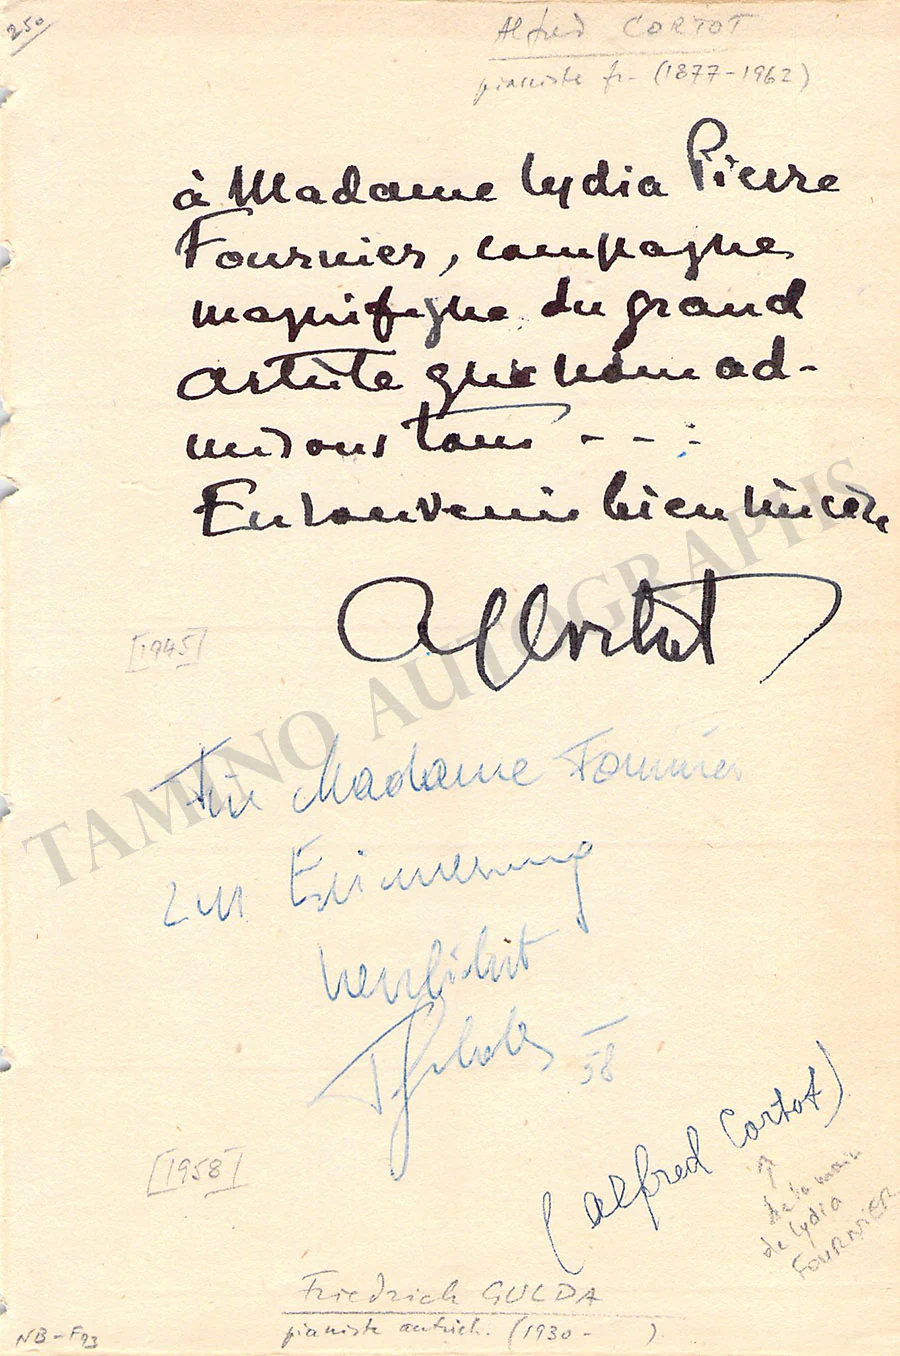 250
Alfred CORTOT
pianiste fr. (1877-1962)
à Madame Lydia Pierre
Fournier, compagne
magnifique du grand
artiste que nous ad-
mirons tous - - -
En souvenir bien sincère
Alf Cortot
[1945]
TAMINO AUTOGRAPHS
Für Madame Fournier
zur Erinnerung
herzlichst
F Gulda
58
(Alfred Cortot)
[1958]
de la main
de Lydia
FOURNIER
Friedrich GULDA
pianiste autrich. (1930-    ).
NB-F93